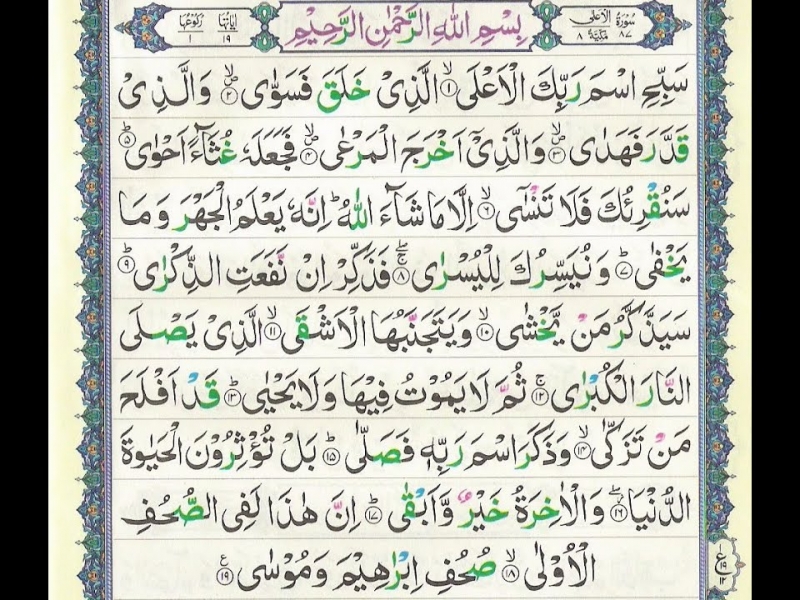 سُوْرَةُ الْاَعْلٰى ٨٧ مَكِّيَّةٌ ٨
بِسْمِ اللّٰهِ الرَّحْمٰنِ الرَّحِيْمِ
اٰيَاتُهَا ١٩ رُكُوْعُهَا ١
سَبِّحِ اسْمَ رَبِّكَ الْاَعْلَى ۙ‏﴿۱﴾ الَّذِىْ خَلَقَ فَسَوّٰى ۙ‏﴿۲﴾ وَالَّذِىْ
قَدَّرَ فَهَدٰى ۙ‏﴿۳﴾ وَالَّذِىْۤ اَخْرَجَ الْمَرْعٰى ۙ‏﴿۴﴾ فَجَعَلَهٗ غُثَآءً اَحْوٰىؕ‏﴿۵﴾
سَنُقْرِئُكَ فَلَا تَنْسٰٓى ۙ‏﴿۶﴾ اِلَّا مَا شَآءَ اللّٰهُ‌ؕ اِنَّهٗ يَعْلَمُ الْجَهْرَ وَمَا
يَخْفٰىؕ‏﴿۷﴾ وَنُيَسِّرُكَ لِلْيُسْرٰى ۖۚ‏﴿۸﴾ فَذَكِّرْ اِنْ نَّفَعَتِ الذِّكْرٰىؕ‏﴿۹﴾
سَيَذَّكَّرُ مَنْ يَّخْشٰى ۙ‏﴿۱۰﴾ وَيَتَجَنَّبُهَا الْاَشْقَى ۙ‏﴿۱۱﴾ الَّذِىْ يَصْلَى
النَّارَ الْكُبْرٰى‌ۚ‏﴿۱۲﴾ ثُمَّ لَا يَمُوْتُ فِيْهَا وَلَا يَحْيٰىؕ‏﴿۱۳﴾ قَدْ اَفْلَحَ
مَنْ تَزَكّٰى ۙ‏﴿۱۴﴾ وَذَكَرَ اسْمَ رَبِّهٖ فَصَلّٰى‌ؕ‏﴿۱۵﴾ بَلْ تُؤْثِرُوْنَ الْحَيٰوةَ
الدُّنْيَا ۖ‏﴿۱۶﴾ وَالْاٰخِرَةُ خَيْرٌ وَّاَبْقٰىؕ‏﴿۱۷﴾ اِنَّ هٰذَا لَفِى الصُّحُفِ
الْاُوْلٰى ۙ‏﴿۱۸﴾ صُحُفِ اِبْرٰهِيْمَ وَمُوْسٰى‏﴿۱۹﴾ ع
ع ١٩ ١٢